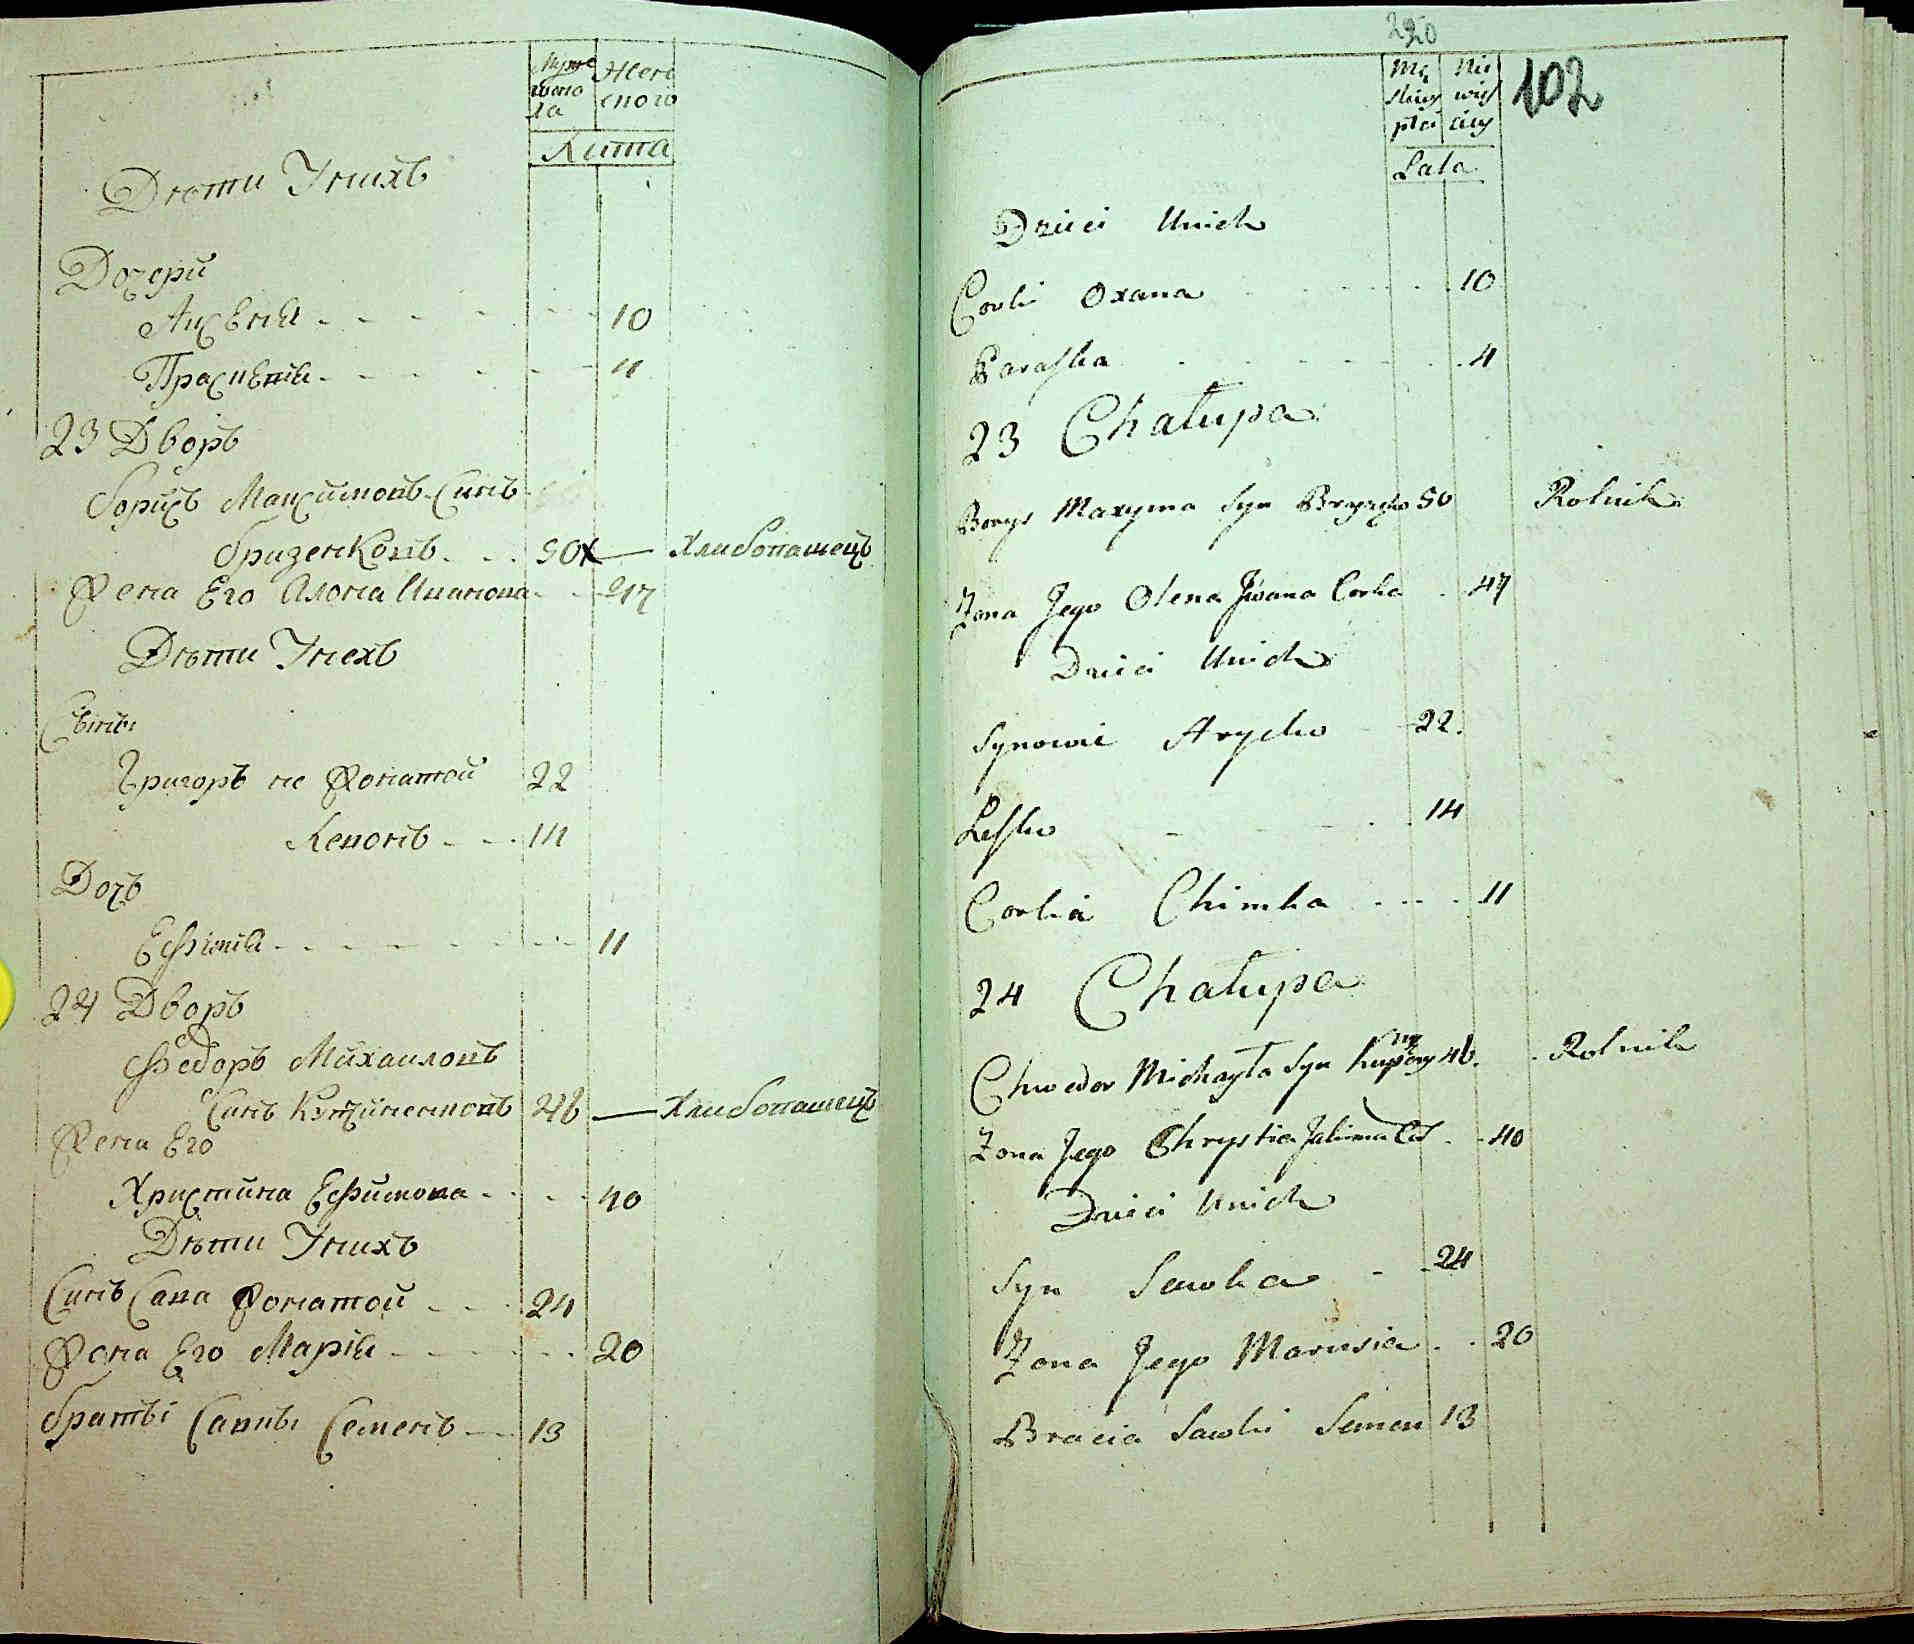 Мужеска
Женского
Лита
Дѣти Унихъ
Дочери
Аксѣнія 10
Прасковія 4
23 Дворъ
Борисъ Максимовъ Синъ
Бризенковъ 50 Хлибопашецъ
Жена Его Алона Иванова 47
Дѣти Унехъ
Сыны
Григоръ не Жонатой 22
Левонъ 14
Дочъ
Ефімія 11
24 Дворъ
Федоръ Михаиловъ
Синъ 46 Хлибопашецъ
Жена Его
Христина Ефимова 40
Дѣти Унихъ
Синъ Сава Жонатой 24
Жона Его Марія 20
Братъі Савъі Семенъ 13
220
102
Męskiey płci
Niewieściey
Lata
Dzieci Unich
Corki Oxana 10
Paraska 4
23 Chałupa
Borys Maxyma Syn 50 Rolnik
Zona Jego Olena Jwana Corka 47
Dzieci Unich
Synowie Hryćko 22
Lesko 14
Corka Chimka 11
24 Chałupa
Chwedor Michayła Syn 46 Rolnik
Zona Jego Chrystia Jakima Cor 40
Dzieci Unich
Syn Sawka 24
Zona Jego Marusia 20
Bracia Sawki Semen 13